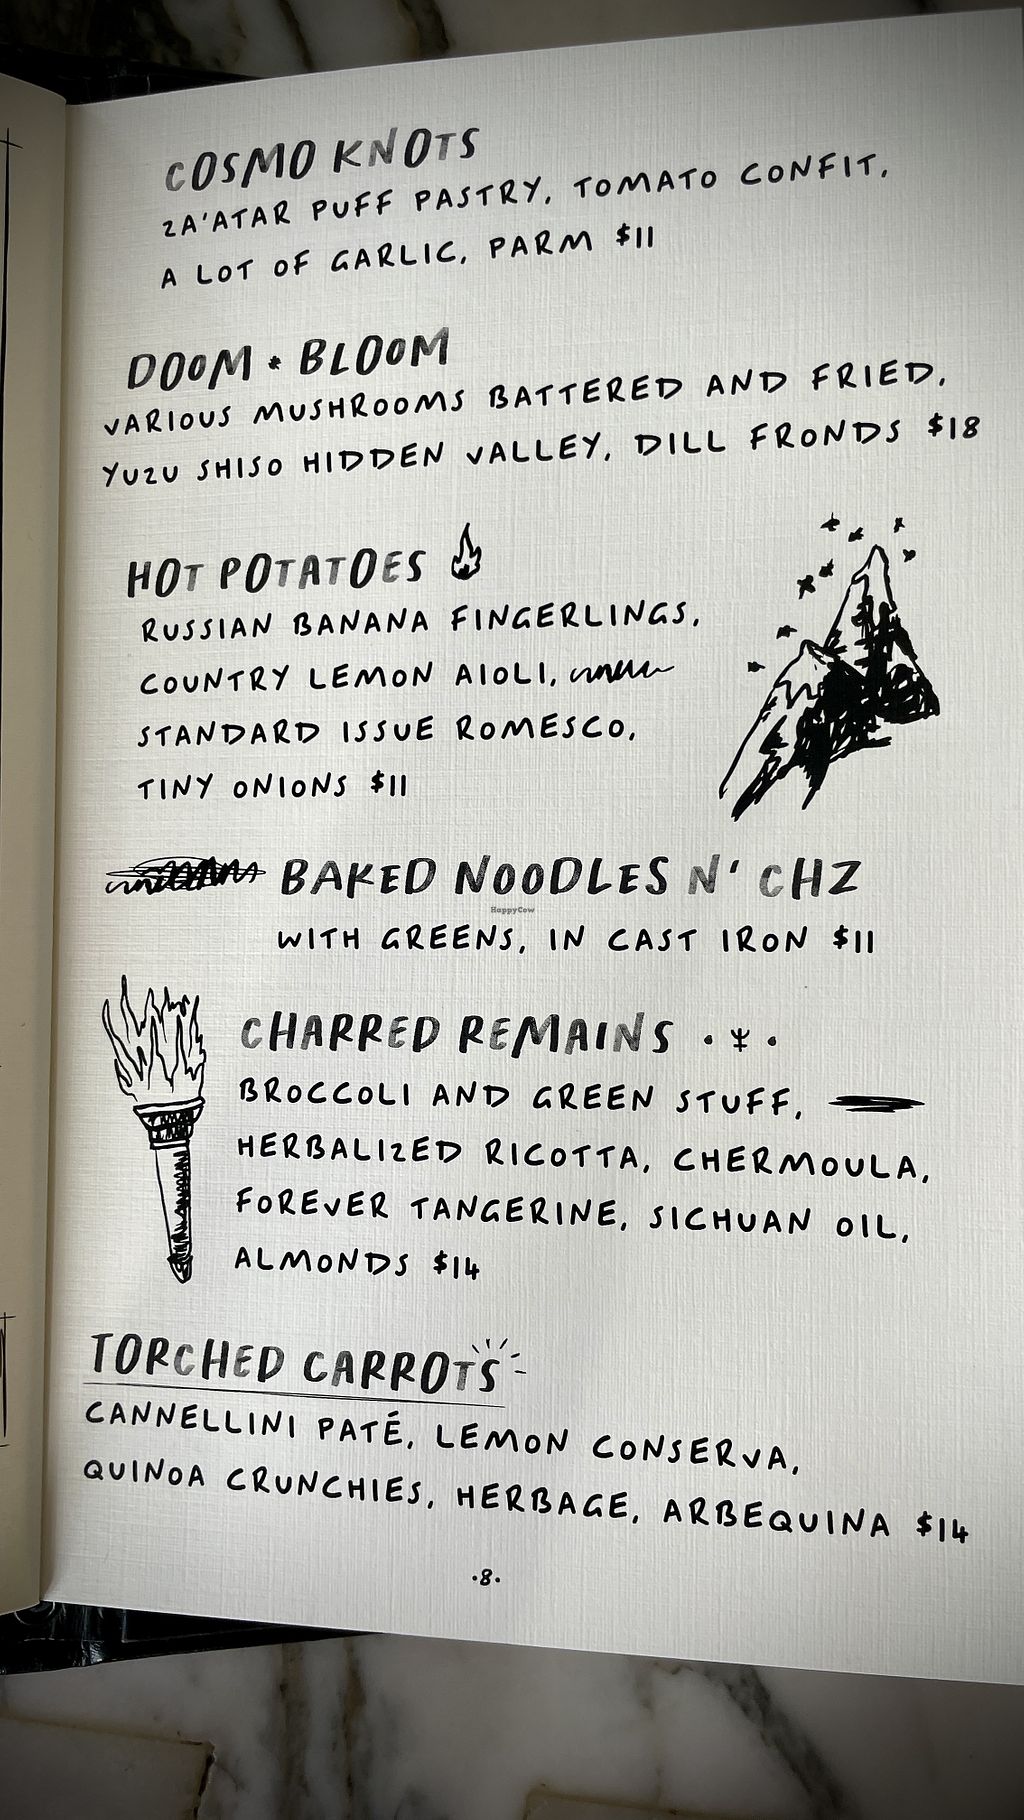 COSMO KNOTS
ZA'ATAR PUFF PASTRY, TOMATO CONFIT,
A LOT OF GARLIC, PARM $11
DOOM * BLOOM
VARIOUS MUSHROOMS BATTERED AND FRIED,
YUZU SHISO HIDDEN VALLEY, DILL FRONDS $18
HOT POTATOES
RUSSIAN BANANA FINGERLINGS,
COUNTRY LEMON AIOLI,
STANDARD ISSUE ROMESCO,
TINY ONIONS $11
BAKED NOODLES N' CHZ
HappyCow
WITH GREENS, IN CAST IRON $11
CHARRED REMAINS
BROCCOLI AND GREEN STUFF,
HERBALIZED RICOTTA, CHERMOULA,
FOREVER TANGERINE, SICHUAN OIL,
ALMONDS $14
TORCHED CARROTS
CANNELLINI PATÉ, LEMON CONSERVA,
QUINOA CRUNCHIES, HERBAGE, ARBEQUINA $14
·8·